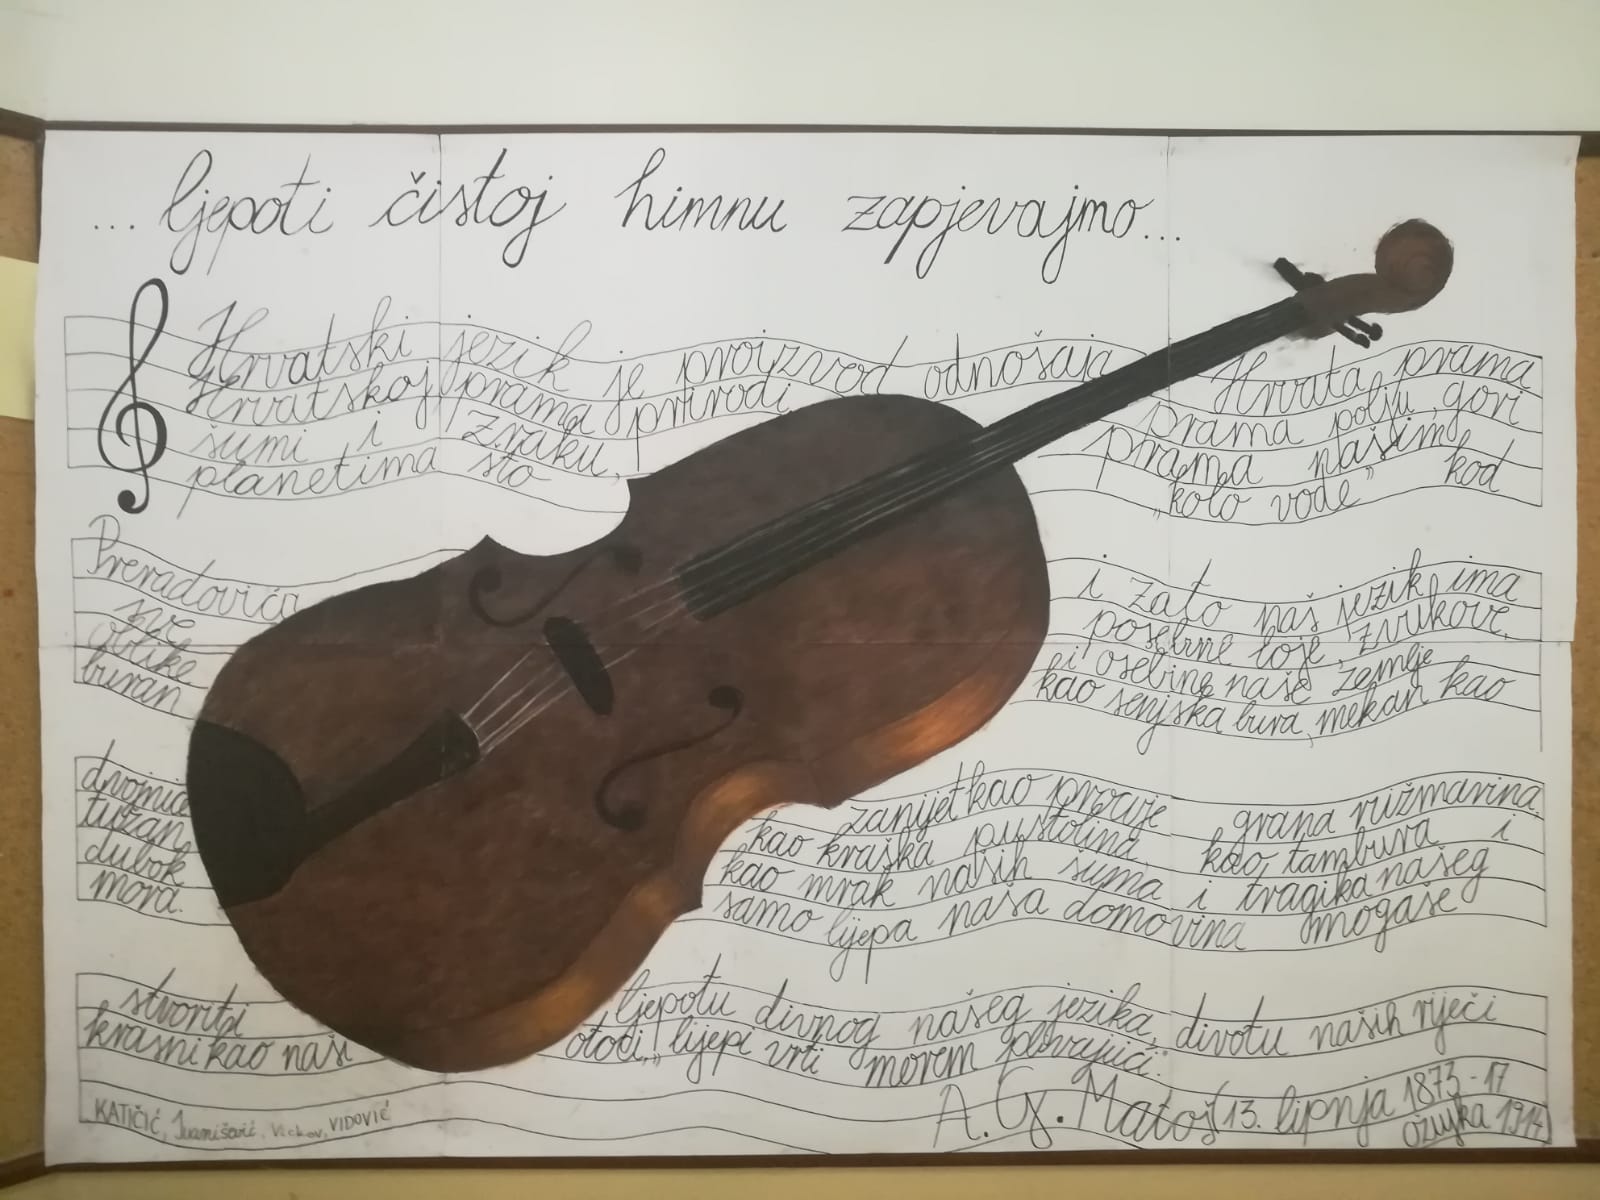 ... ljepoti čistoj himnu zapjevajmo...
Hrvatski jezik je proizvod odnošaja Hrvata prama
Hrvatskoj prama prirodi prama polju, gori
šumi i zraku, prama našim
planetima što „kolo vode” kod
Preradovića i zato naš jezik ima
sve posebne boje, zvukove,
oblike i osebine naše zemlje
buran kao senjska bura, mekan kao
dvojnice zanijet kao procvje grana ružmarina,
tužan kao kraška pustolina, kao tambura i
dubok kao mrak naših šuma i tragika našeg
mora. samo lijepa naša domovina mogaše
stvoriti ljepotu divnog našeg jezika, divotu naših riječi
krasni kao naši otoci, „lijepi vrti morem plivajući.”
A. G. Matoš (13. lipnja 1873.-17
ožujka 1914)
KATIČIĆ, Ivanišević, Vickov, VIDOVIĆ